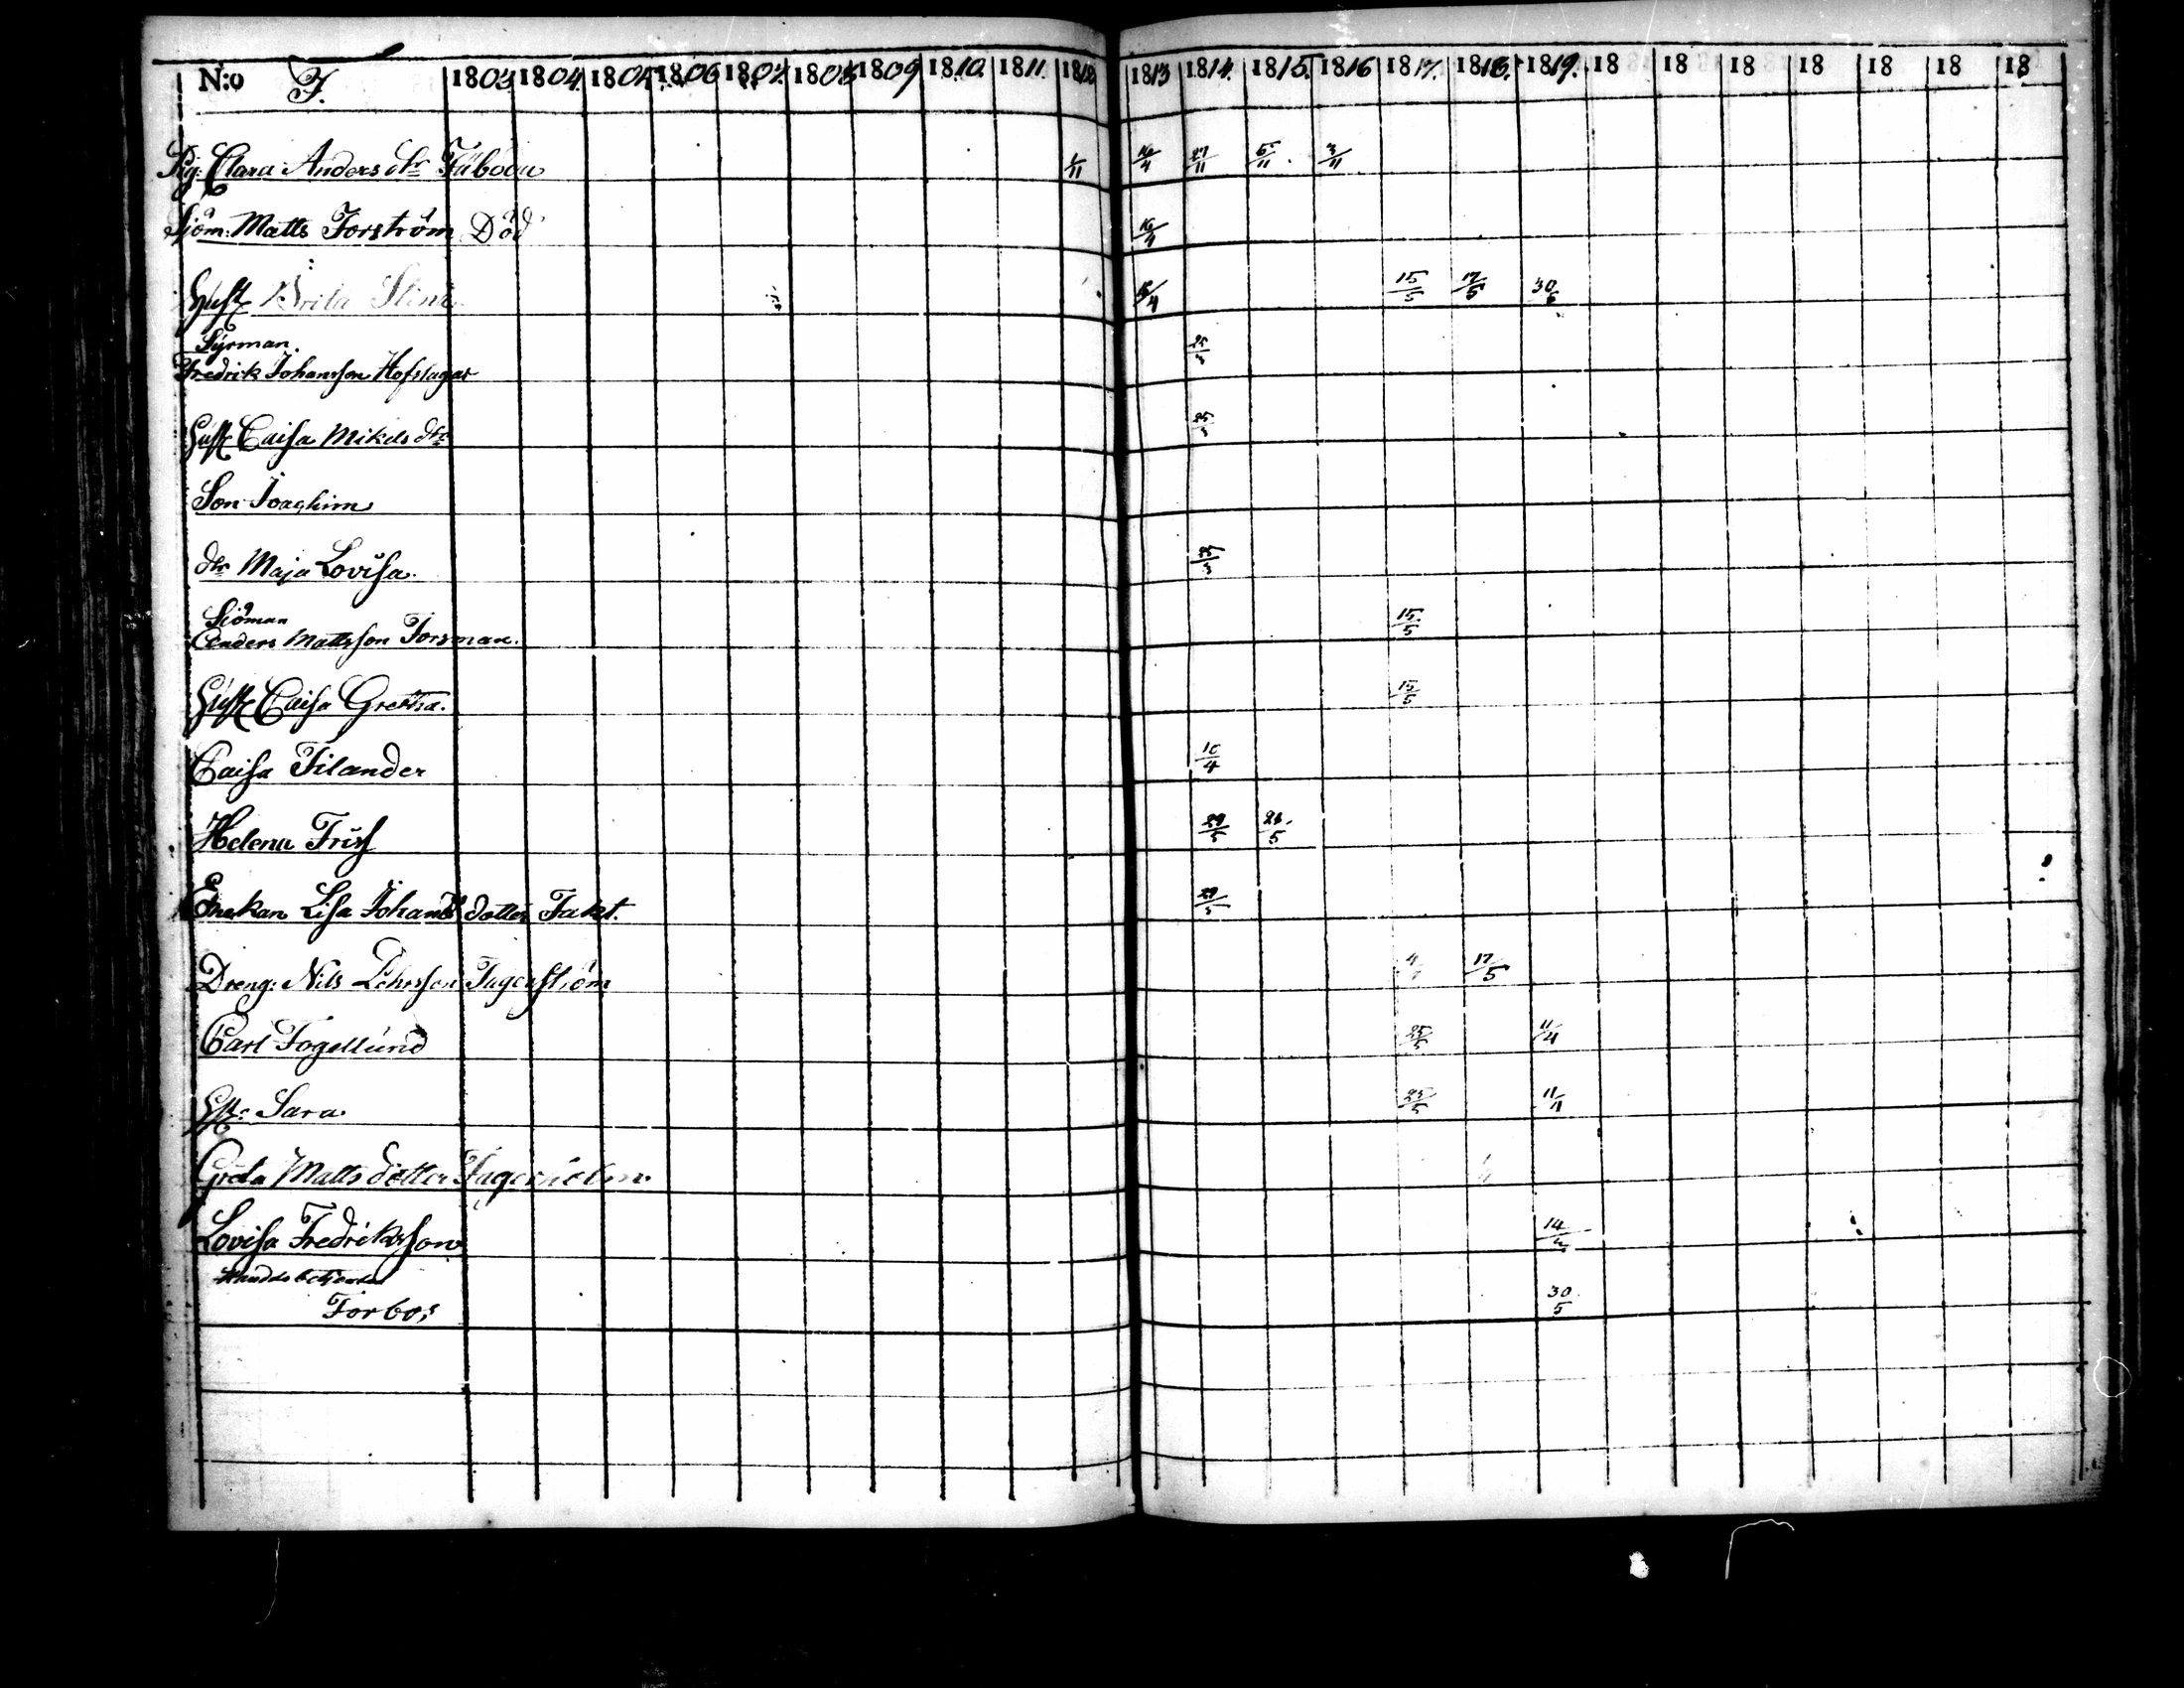 N:o F. 1803. 1804. 1805. 1806 1807. 1808 1809 1810. 1811. 1812 1813 1814. 1815. 1816 1817. 1818. 1819. 18 18 18 18 18 18 18
Pig: Clara Anders dr Fäboda 1/11 16/4 27/11 5/11 3/11
Sjöm: Matts Forström Död 16/4
Hust Brita Stina 16/4 15/5 17/5 30/5
Fredrik Johansson Hofslagar 25/3
Hust Caisa Mikels dr 25/3
Son Joachim
dtr Maja Lovisa. 25/3
Siöman
Anders Mattsson Forsman. 15/5
Hust Caisa Gretha. 15/5
Caisa Filander 10/4
Helena Frisk 29/5 28/5
Enkan Lisa Johans dotter Fakt. 29/5
Dreng: Nils Pehrsson Fagerström 17/5
Carl Fogellund 25/5 11/4
Sara. 25/5 11/4
Greta Matts dotter Fagerholm.
Lovisa Fredriksson 14
Forbos 30/5